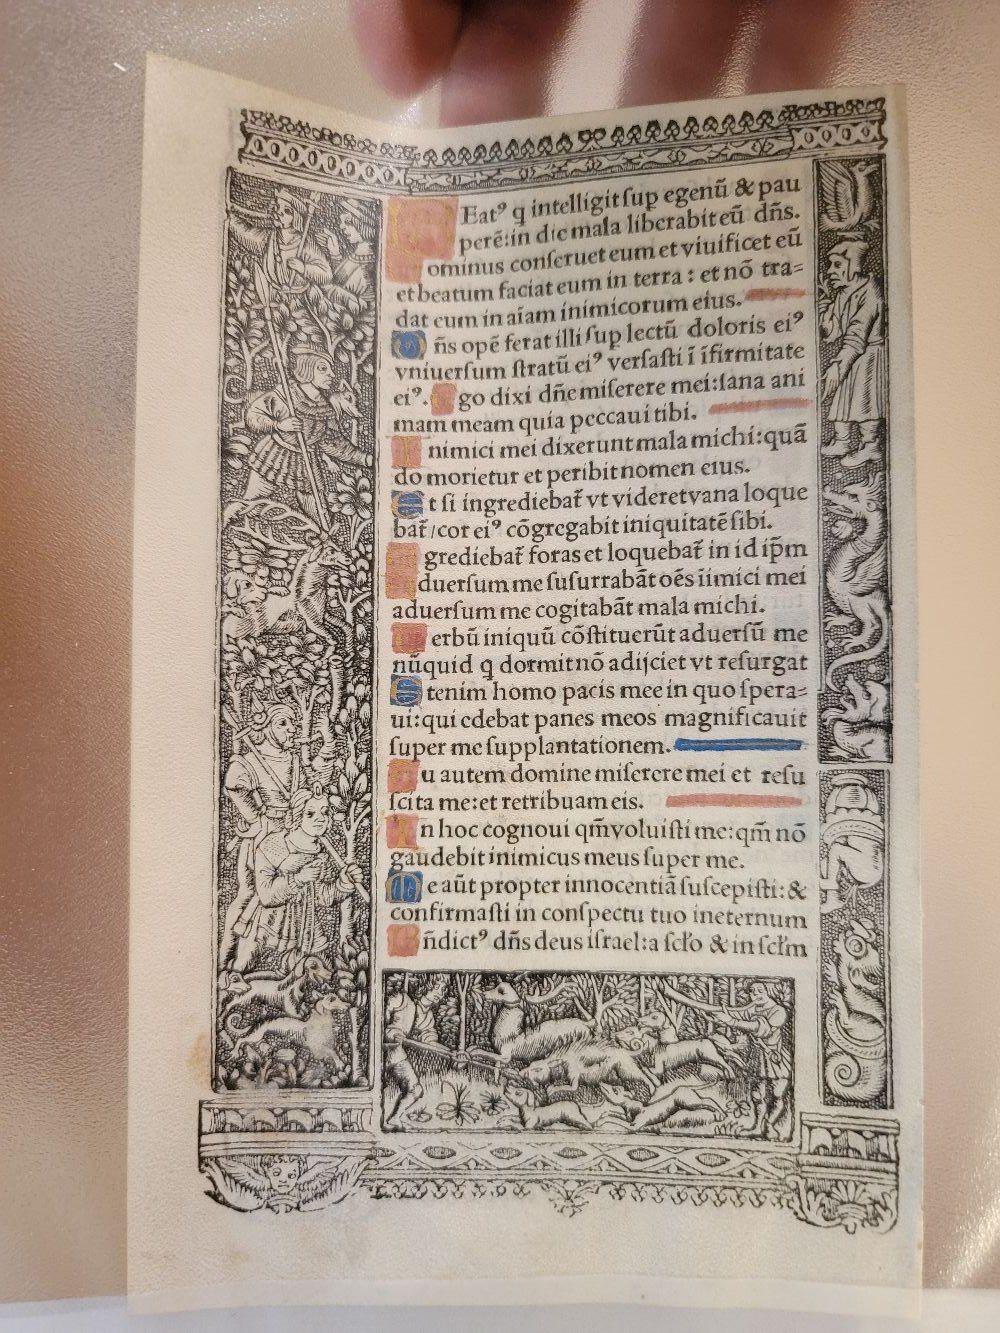 BEatꝰ q intelligit sup egenū & pau
perē: in die mala liberabit eū dn̄s.
Dominus conseruet eum et viuificet eū
et beatum faciat eum in terra: et nō tra=
dat eum in aīam inimicorum eius.
Dn̄s opē ferat illi sup lectū doloris eiꝰ
vniuersum stratū eiꝰ versasti ī īfirmitate
eiꝰ. Ego dixi dn̄e miserere mei: sana ani
mam meam quia peccaui tibi.
Inimici mei dixerunt mala michi: quā
do morietur et peribit nomen eius.
Et si ingrediebat̄ vt videret vana loque
bat̄/cor eiꝰ cōgregabit iniquitatē sibi.
Egrediebat̄ foras et loquebat̄ in id ip̄m
Aduersum me susurrabāt oēs iīmici mei
aduersum me cogitabāt mala michi.
Verbū iniquū cōstituerūt aduersū me
nūquid q dormit nō adijciet vt resurgat
Etenim homo pacis mee in quo spera=
ui: qui edebat panes meos magnificauit
super me supplantationem.
Tu autem domine miserere mei et resu
scita me: et retribuam eis.
In hoc cognoui qm̄ voluisti me: qm̄ nō
gaudebit inimicus meus super me.
Me aūt propter innocentiā suscepisti: &
confirmasti in conspectu tuo in eternum
Bn̄dictꝰ dn̄s deus israel: a scl̄o & in scl̄m